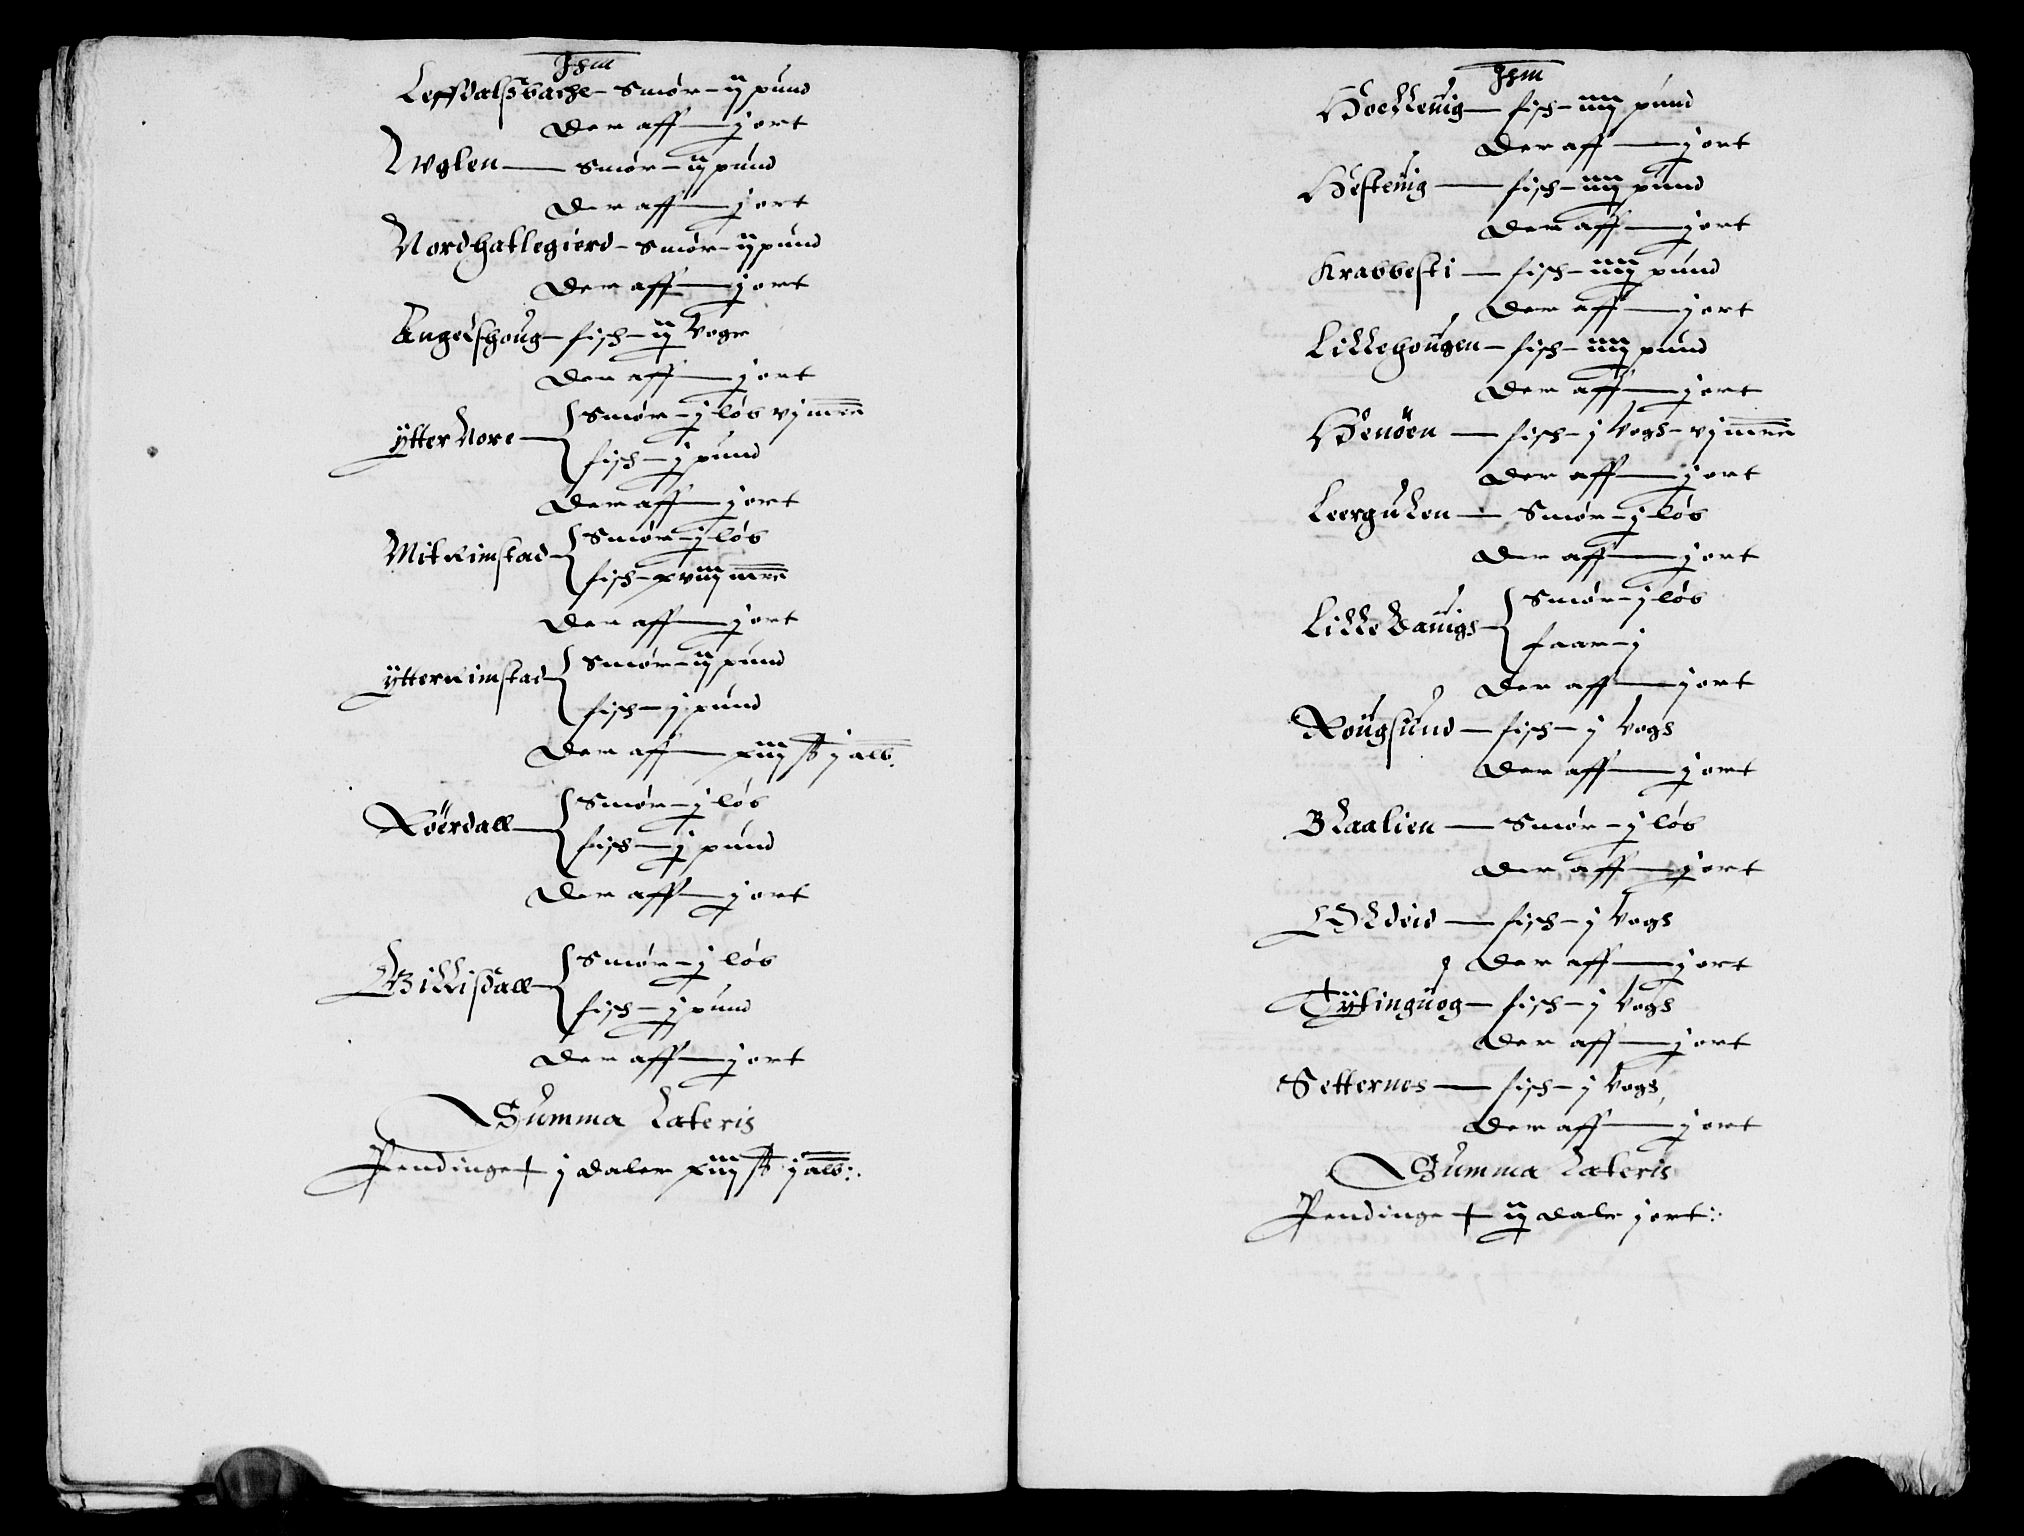 Jhm
Leffdalsbache - Smør - ij pund
der aff - j ort
Wglen - Smør - ij pund
der aff - j ort
Nordhatlegierd - Smør - ij pund
der aff - j ort
Angelshoug - fisch - ij Voge
der aff - j ort
ÿtter Nore - Smør - j løb vj mrr
fisch - j pund
der aff - j ort
Mit Rimstad - Smør - j løb
fisch - xviij mrr
der aff - j ort
ÿtter Rimstad - Smør - ij pund
fisch - j pund
der aff - xiij ß j alb.
Røerdall - Smør - j løb
fisch - j pund
der aff - j ort
Willisdall - Smør - j løb
fisch - j pund
der aff - j ort
Summa Lateris
Pendinge + j daler xiij ß j alb:.
Jhm
Hoellenig - fisch - iiij pund
der aff - j ort
Hestenig - fisch - iiij pund
der aff - j ort
Krabbesti - fisch - iiij pund
der aff - j ort
Lillehougen - fisch - iiij pund
der aff - j ort
Henöen - fisch - j Vogs - vj mrr
der aff - j ort
Leergulen - Smør - j løb
der aff - j ort
Lille - Smør - j løb
faar - j
der aff - j ort
Rougsund - fisch - j Vogs
der aff - j ort
Blaalien - Smør - j løb
der aff - j ort
Oldeid - fisch - j Vogs
der aff - j ort
Tÿtinguog - fisch - j Vogs
der aff - j ort
Setternes - fisch - j Vogs,
der aff - j ort
Summa Lateris
Pendinge + ij dalr j ort:.